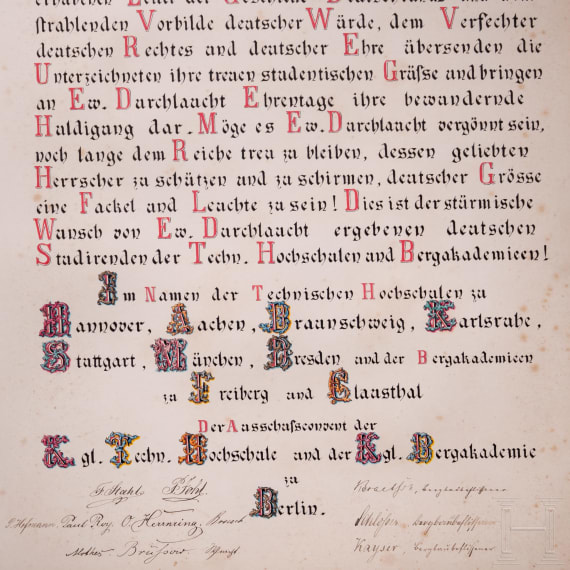 strahlenden Vorbilde deutscher Würde, dem Verfechter
deutschen Rechtes und deutscher Ehre übersenden die
Unterzeichneten ihre treuen studentischen Grüsse und bringen
an Ew. Durchlaucht Ehrentage ihre bewundernde
Huldigung dar. Möge es Ew. Durchlaucht vergönnt sein,
noch lange dem Reiche treu zu bleiben, dessen geliebten
Herrscher zu schützen und zu schirmen, deutscher Grösse
eine Fackel und Leuchte zu sein! Dies ist der stürmische
Wunsch von Ew. Durchlaucht ergebenen deutschen
Studirenden der Techn. Hochschulen und Bergakademieen!
Im Namen der Technischen Hochschulen zu
Hannover, Aachen, Braunschweig, Karlsruhe,
Stuttgart, München, Dresden und der Bergakademieen
zu Freiberg und Clausthal
Der Ausschussconvent der
Kgl. Techn. Hochschule und der Kgl. Bergakademie
zu
Berlin.
G. Stahl
L. Hofmann. Paul Roy. O. Herning.
Kayser, bergbaubeflissener